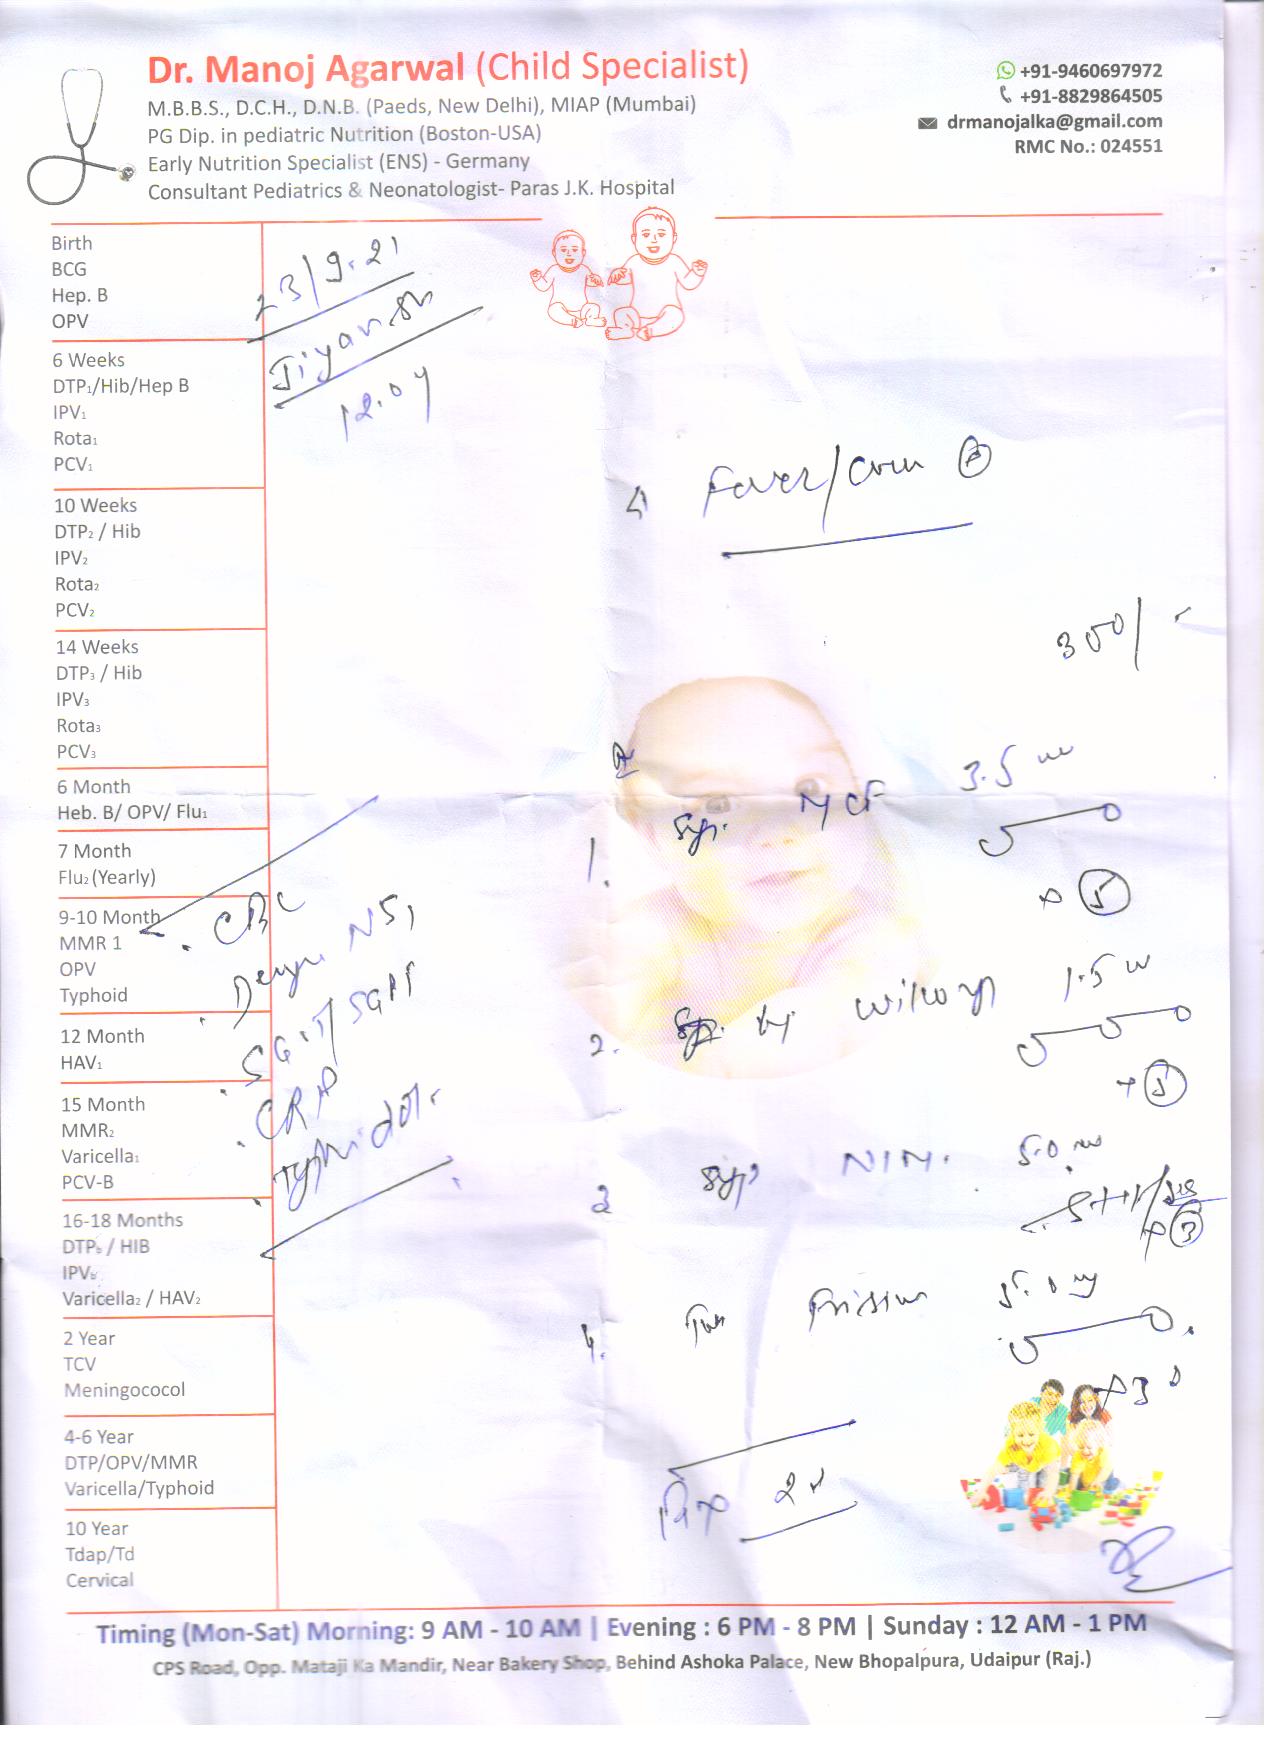 Dr. Manoj Agarwal (Child Specialist)
M.B.B.S., D.C.H., D.N.B. (Paeds, New Delhi), MIAP (Mumbai)
PG Dip. in pediatric Nutrition (Boston-USA)
Early Nutrition Specialist (ENS) - Germany
Consultant Pediatrics & Neonatologist- Paras J.K. Hospital
+91-9460697972
+91-8829864505
drmanojalka@gmail.com
RMC No.: 024551
Birth
BCG
Hep. B
OPV
6 Weeks
DTP1/Hib/Hep B
IPV1
Rota1
PCV1
10 Weeks
DTP2 / Hib
IPV2
Rota2
PCV2
14 Weeks
DTP3 / Hib
IPV3
Rota3
PCV3
6 Month
Heb. B/ OPV/ Flu1
7 Month
Flu2 (Yearly)
9-10 Month
MMR 1
OPV
Typhoid
12 Month
HAV1
15 Month
MMR2
Varicella1
PCV-B
16-18 Months
DTPb / HIB
IPVb
Varicella2 / HAV2
2 Year
TCV
Meningococol
4-6 Year
DTP/OPV/MMR
Varicella/Typhoid
10 Year
Tdap/Td
Cervical
23/9.21
Jiyansh
12.04
Fever/
300/-
CBC
Dengue NS1
SGOT/SGPT
CRP
Typhidot
1. Syp. MCF 3.5
5
2. 1.5
5
3 Syp 5.0
3
4. 5.0
3
2
Timing (Mon-Sat) Morning: 9 AM - 10 AM | Evening : 6 PM - 8 PM | Sunday : 12 AM - 1 PM
CPS Road, Opp. Mataji Ka Mandir, Near Bakery Shop, Behind Ashoka Palace, New Bhopalpura, Udaipur (Raj.)